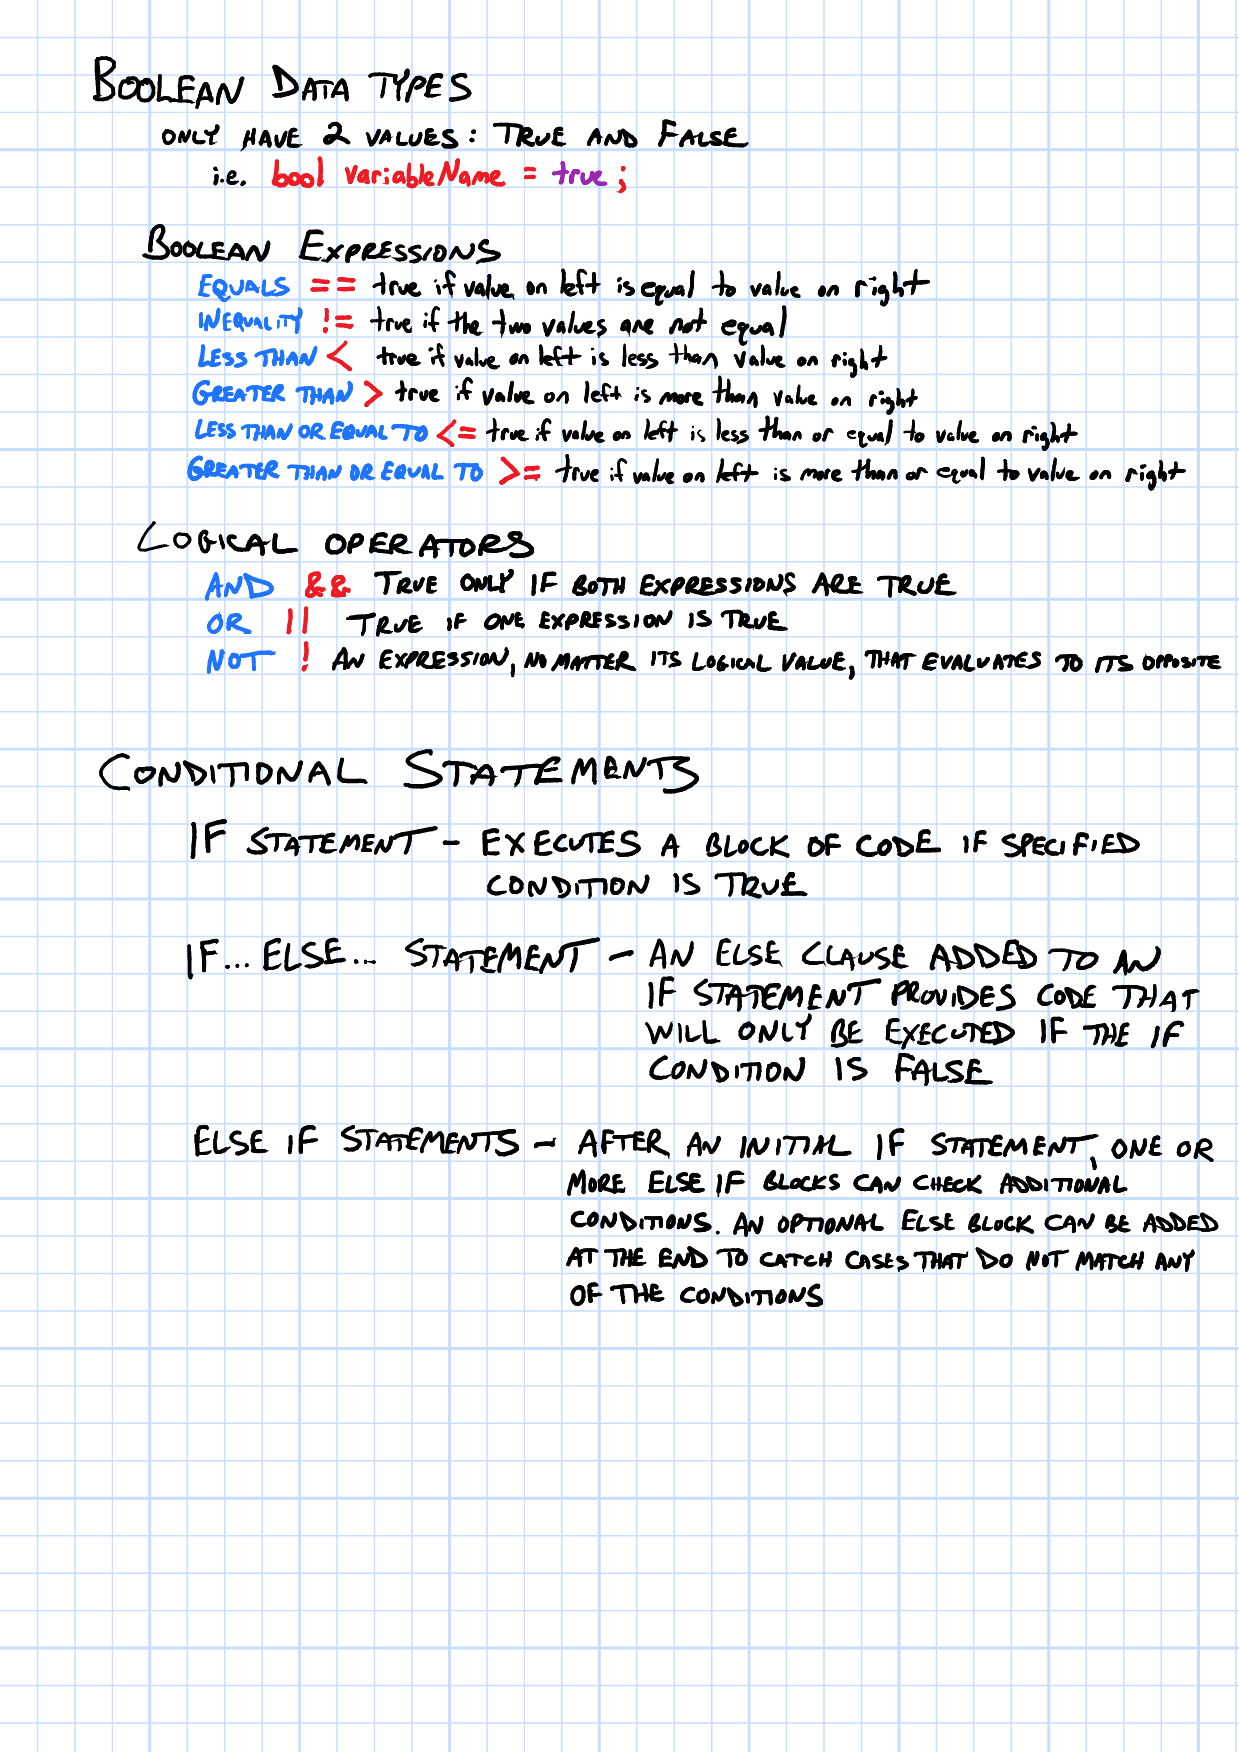 BOOLEAN DATA TYPES
ONLY HAVE 2 VALUES: TRUE AND FALSE
i.e. bool variableName = true;
BOOLEAN EXPRESSIONS
EQUALS == true if value on left is equal to value on right
INEQUALITY != true if the two values are not equal
LESS THAN < true if value on left is less than value on right
GREATER THAN > true if value on left is more than value on right
LESS THAN OR EQUAL TO <= true if value on left is less than or equal to value on right
GREATER THAN OR EQUAL TO >= true if value on left is more than or equal to value on right
LOGICAL OPERATORS
AND && TRUE ONLY IF BOTH EXPRESSIONS ARE TRUE
OR || TRUE IF ONE EXPRESSION IS TRUE
NOT ! AN EXPRESSION, NO MATTER ITS LOGICAL VALUE, THAT EVALUATES TO ITS OPPOSITE
CONDITIONAL STATEMENTS
IF STATEMENT - EXECUTES A BLOCK OF CODE IF SPECIFIED
CONDITION IS TRUE
IF... ELSE... STATEMENT - AN ELSE CLAUSE ADDED TO AN
IF STATEMENT PROVIDES CODE THAT
WILL ONLY BE EXECUTED IF THE IF
CONDITION IS FALSE
ELSE IF STATEMENTS - AFTER AN INITIAL IF STATEMENT, ONE OR
MORE ELSE IF BLOCKS CAN CHECK ADDITIONAL
CONDITIONS. AN OPTIONAL ELSE BLOCK CAN BE ADDED
AT THE END TO CATCH CASES THAT DO NOT MATCH ANY
OF THE CONDITIONS